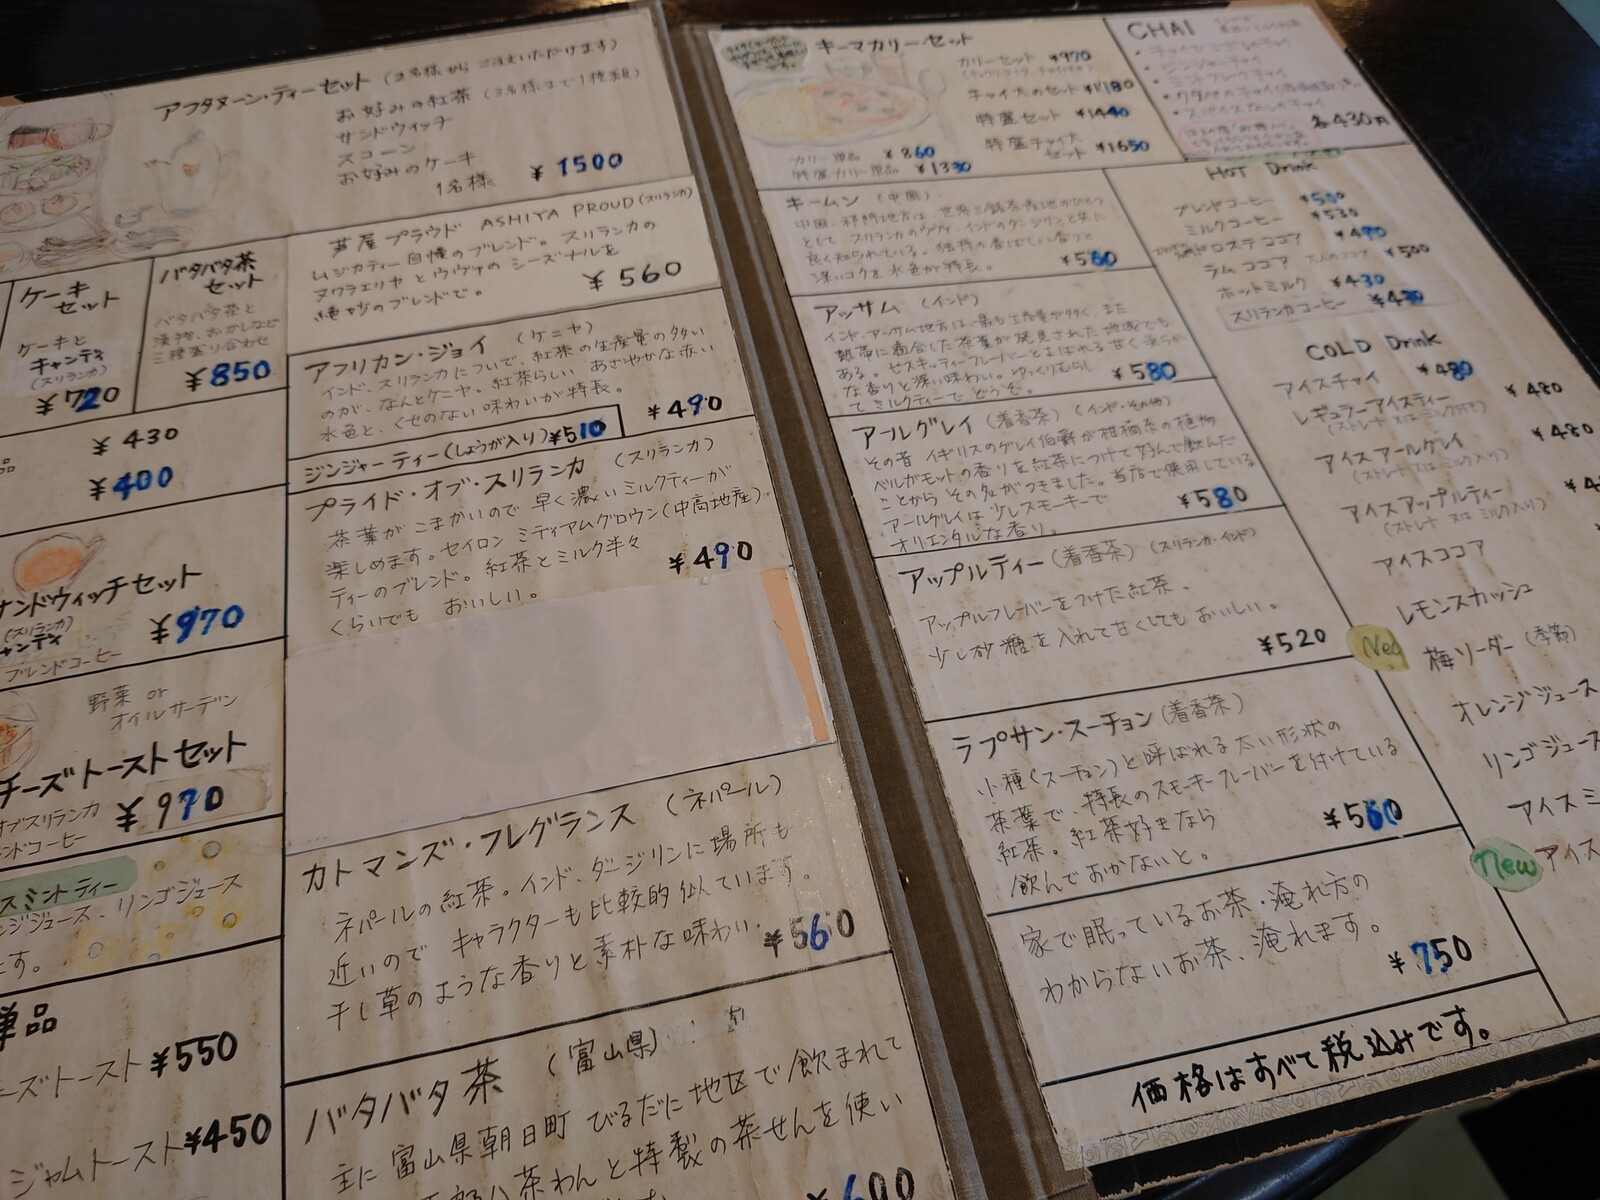 アフタヌーン・ティーセット (2名様から ご注文いただけます)
お好みの紅茶 (3名様まで1種類)
サンドウィッチ
スコーン
お好みのケーキ
1名様 ¥1500
ケーキ
セット
ケーキと
キャンディ
(スリランカ)
¥720
バタバタ茶
セット
バタバタ茶と
漬物、おかしなど
三種盛り合わせ
¥850
¥430
¥400
サンドウィッチセット
(スリランカ)
¥970
ブレンドコーヒー
野菜 or
オイルサーデン
チーズトーストセット
オブスリランカ
¥970
ンドコーヒー
スミントティー
ンジジュース、リンゴジュース
す。
単品
ーズトースト ¥550
ジャムトースト ¥450
芦屋プラウド ASHIYA PROUD (スリランカ)
ムジカティー自慢のブレンド。スリランカの
ヌワラエリヤとウヴァのシーズナルを
絶妙のブレンドで。
¥560
アフリカン・ジョイ (ケニヤ)
インド、スリランカについで、紅茶の生産量の多い
のが、なんとケニヤ。紅茶らしい あざやかな赤い
水色と、くせのない味わいが特長。
¥490
ジンジャーティー(しょうが入り) ¥510
プライド・オブ・スリランカ (スリランカ)
茶葉がこまかいので 早く濃いミルクティーが
楽しめます。セイロン ミディアムグロウン(中高地産)
ティーのブレンド。紅茶とミルク半々
くらいでも おいしい。
¥490
カトマンズ・フレグランス (ネパール)
ネパールの紅茶。インド、ダージリンに場所も
近いので キャラクターも比較的似ています。
干し草のような香りと素朴な味わい。
¥560
バタバタ茶 (富山県)
主に富山県朝日町 びるだに地区で飲まれて
八茶わんと特製の茶せんを使い
¥600
キーマカリーセット
カリーセット ¥970
チャイ大のセット ¥1180
特盛セット ¥1440
特盛チャイ大
セット ¥1650
カリー単品 ¥860
特盛カリー単品 ¥1330
CHAI
・ジンジャーチャイ
各430円
キームン (中国)
中国、祁門地方は、世界三銘茶産地のひとつ
として、スリランカのウヴァ、インドのダージリンと共に
良く知られている。独特の香ばしい香りと
深いコクと水色が特長。
¥560
アッサム (インド)
インド、アッサム地方は、最も生産量が多く、また
熱帯に適合した茶葉が発見された地域でも
ある。ゼスキッティーフレーバーとよばれる甘く柔らか
な香りと深い味わい。ゆっくりむらし
てミルクティーでどうぞ。
¥580
アールグレイ (着香茶) (インド・その他)
その昔 イギリスのグレイ伯爵が柑橘系の植物
ベルガモットの香りを紅茶につけて好んで飲んだ
ことから その名がつきました。当店で使用している
アールグレイは少しスモーキーで
オリエンタルな香り。
¥580
アップルティー (着香茶) (スリランカ・インド)
アップルフレーバーをつけた紅茶。
少し砂糖を入れて甘くしてもおいしい。
¥520
ラプサン・スーチョン (着香茶)
小種(スーチョン)と呼ばれる太い形状の
茶葉で、特長のスモーキーフレーバーを付けている
紅茶。紅茶好きなら
飲んでおかないと。
¥560
家で眠っているお茶・淹れ方の
わからないお茶、淹れます。
¥750
価格はすべて税込みです。
HOT Drink
ブレンドコーヒー ¥500
ミルクコーヒー ¥530
ココア ¥490
ラムココア 大人のココア ¥500
ホットミルク ¥430
スリランカコーヒー ¥430
COLD Drink
アイスチャイ ¥480
レギュラーアイスティー ¥480
(ストレート又はミルク付き)
アイスアールグレイ ¥480
(ストレート又はミルク入り)
アイスアップルティー
(ストレート又はミルク入り)
アイスココア
レモンスカッシュ
梅ソーダー (季節)
オレンジジュース
リンゴジュース
アイスミ
New アイス